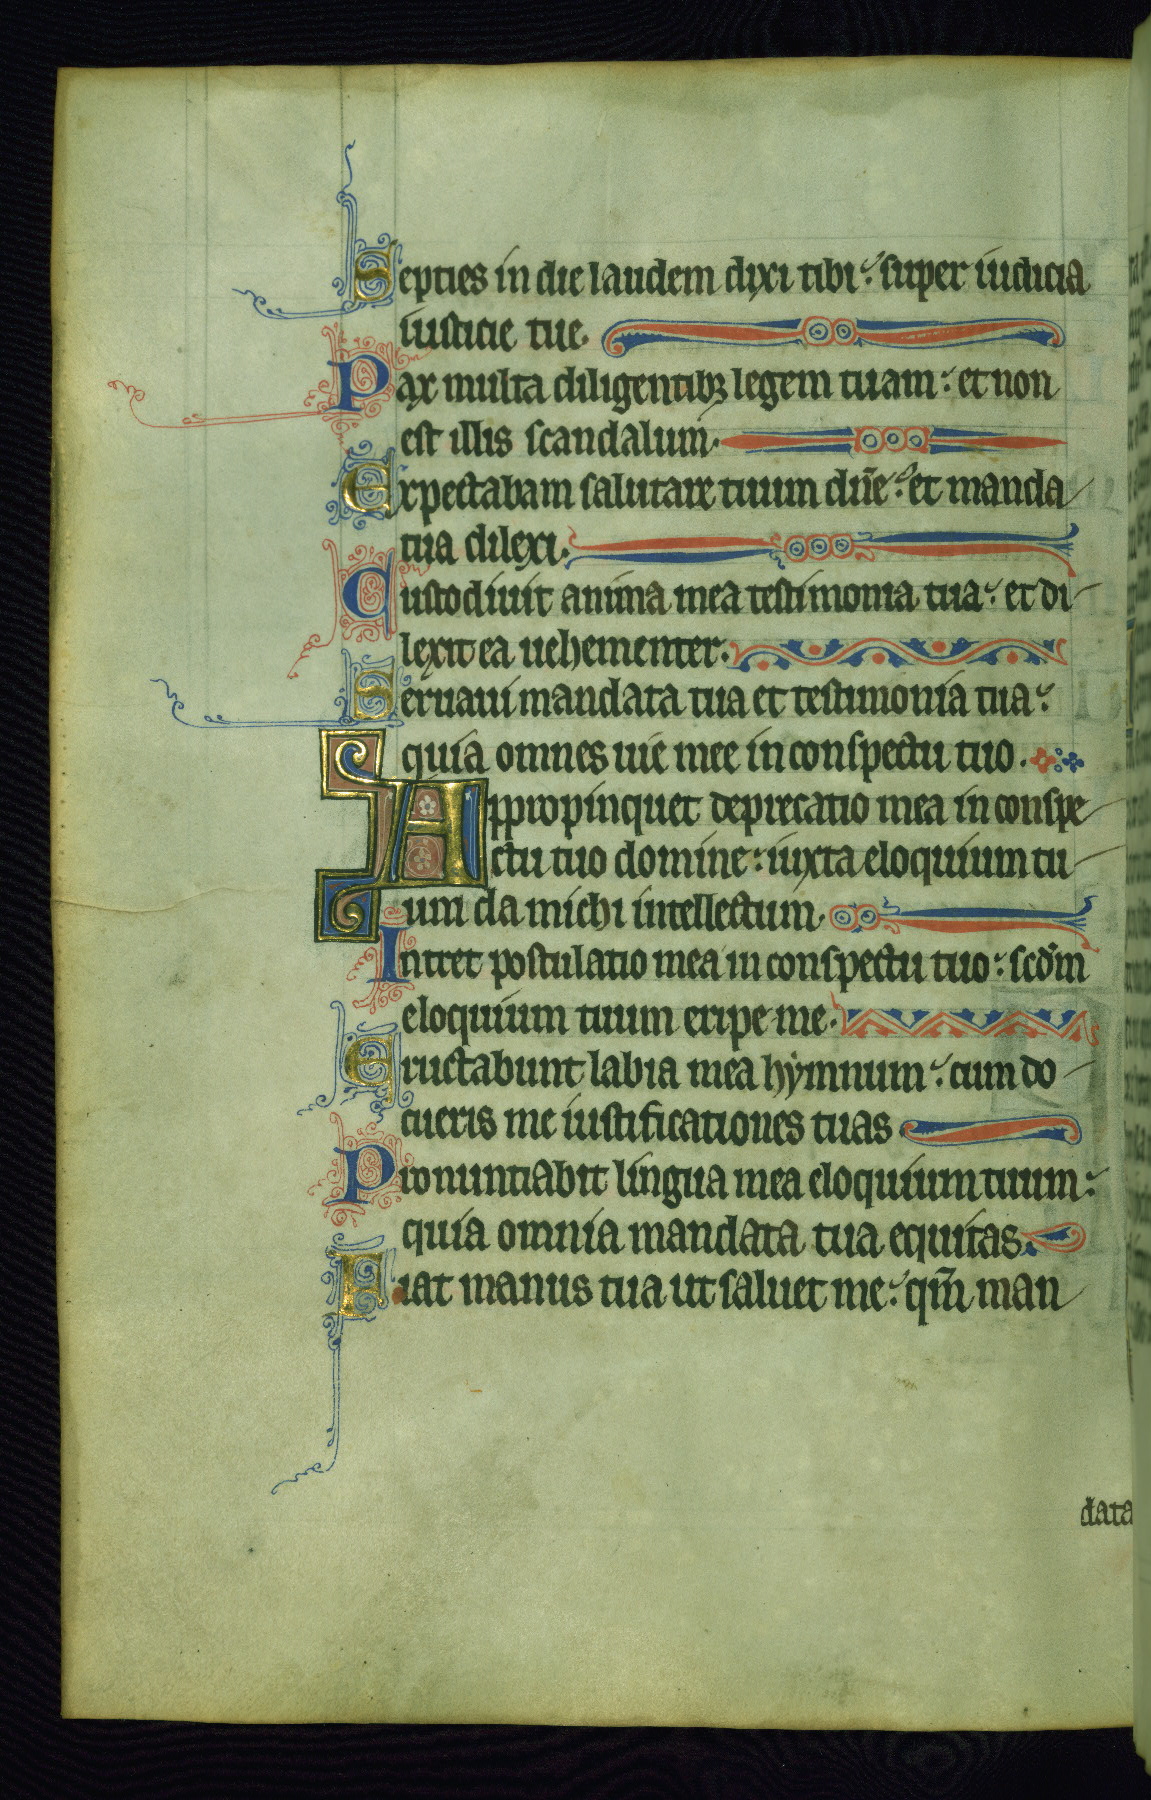 Septies in die laudem dixi tibi: super iudicia
iusticie tue.
Pax multa diligentibꝫ legem tuam: et non
est illis scandalum.
Expectabam salutare tuum dn̄e: et manda
tua dilexi.
Custodiuit anima mea testimonia tua: et di
lexit ea uehementer.
Seruaui mandata tua et testimonia tua:
quia omnes uie mee in conspectu tuo.
Appropinquet deprecatio mea in conspe
ctu tuo domine: iuxta eloquium tu
um da michi intellectum.
Intret postulatio mea in conspectu tuo: scd̄m
eloquium tuum eripe me.
Eructabunt labia mea hẏmnum: cum do
cueris me iustificationes tuas
Pronuntiabit lingua mea eloquium tuum:
quia omnia mandata tua equitas.
Fiat manus tua ut saluet me: qm̄ man
data